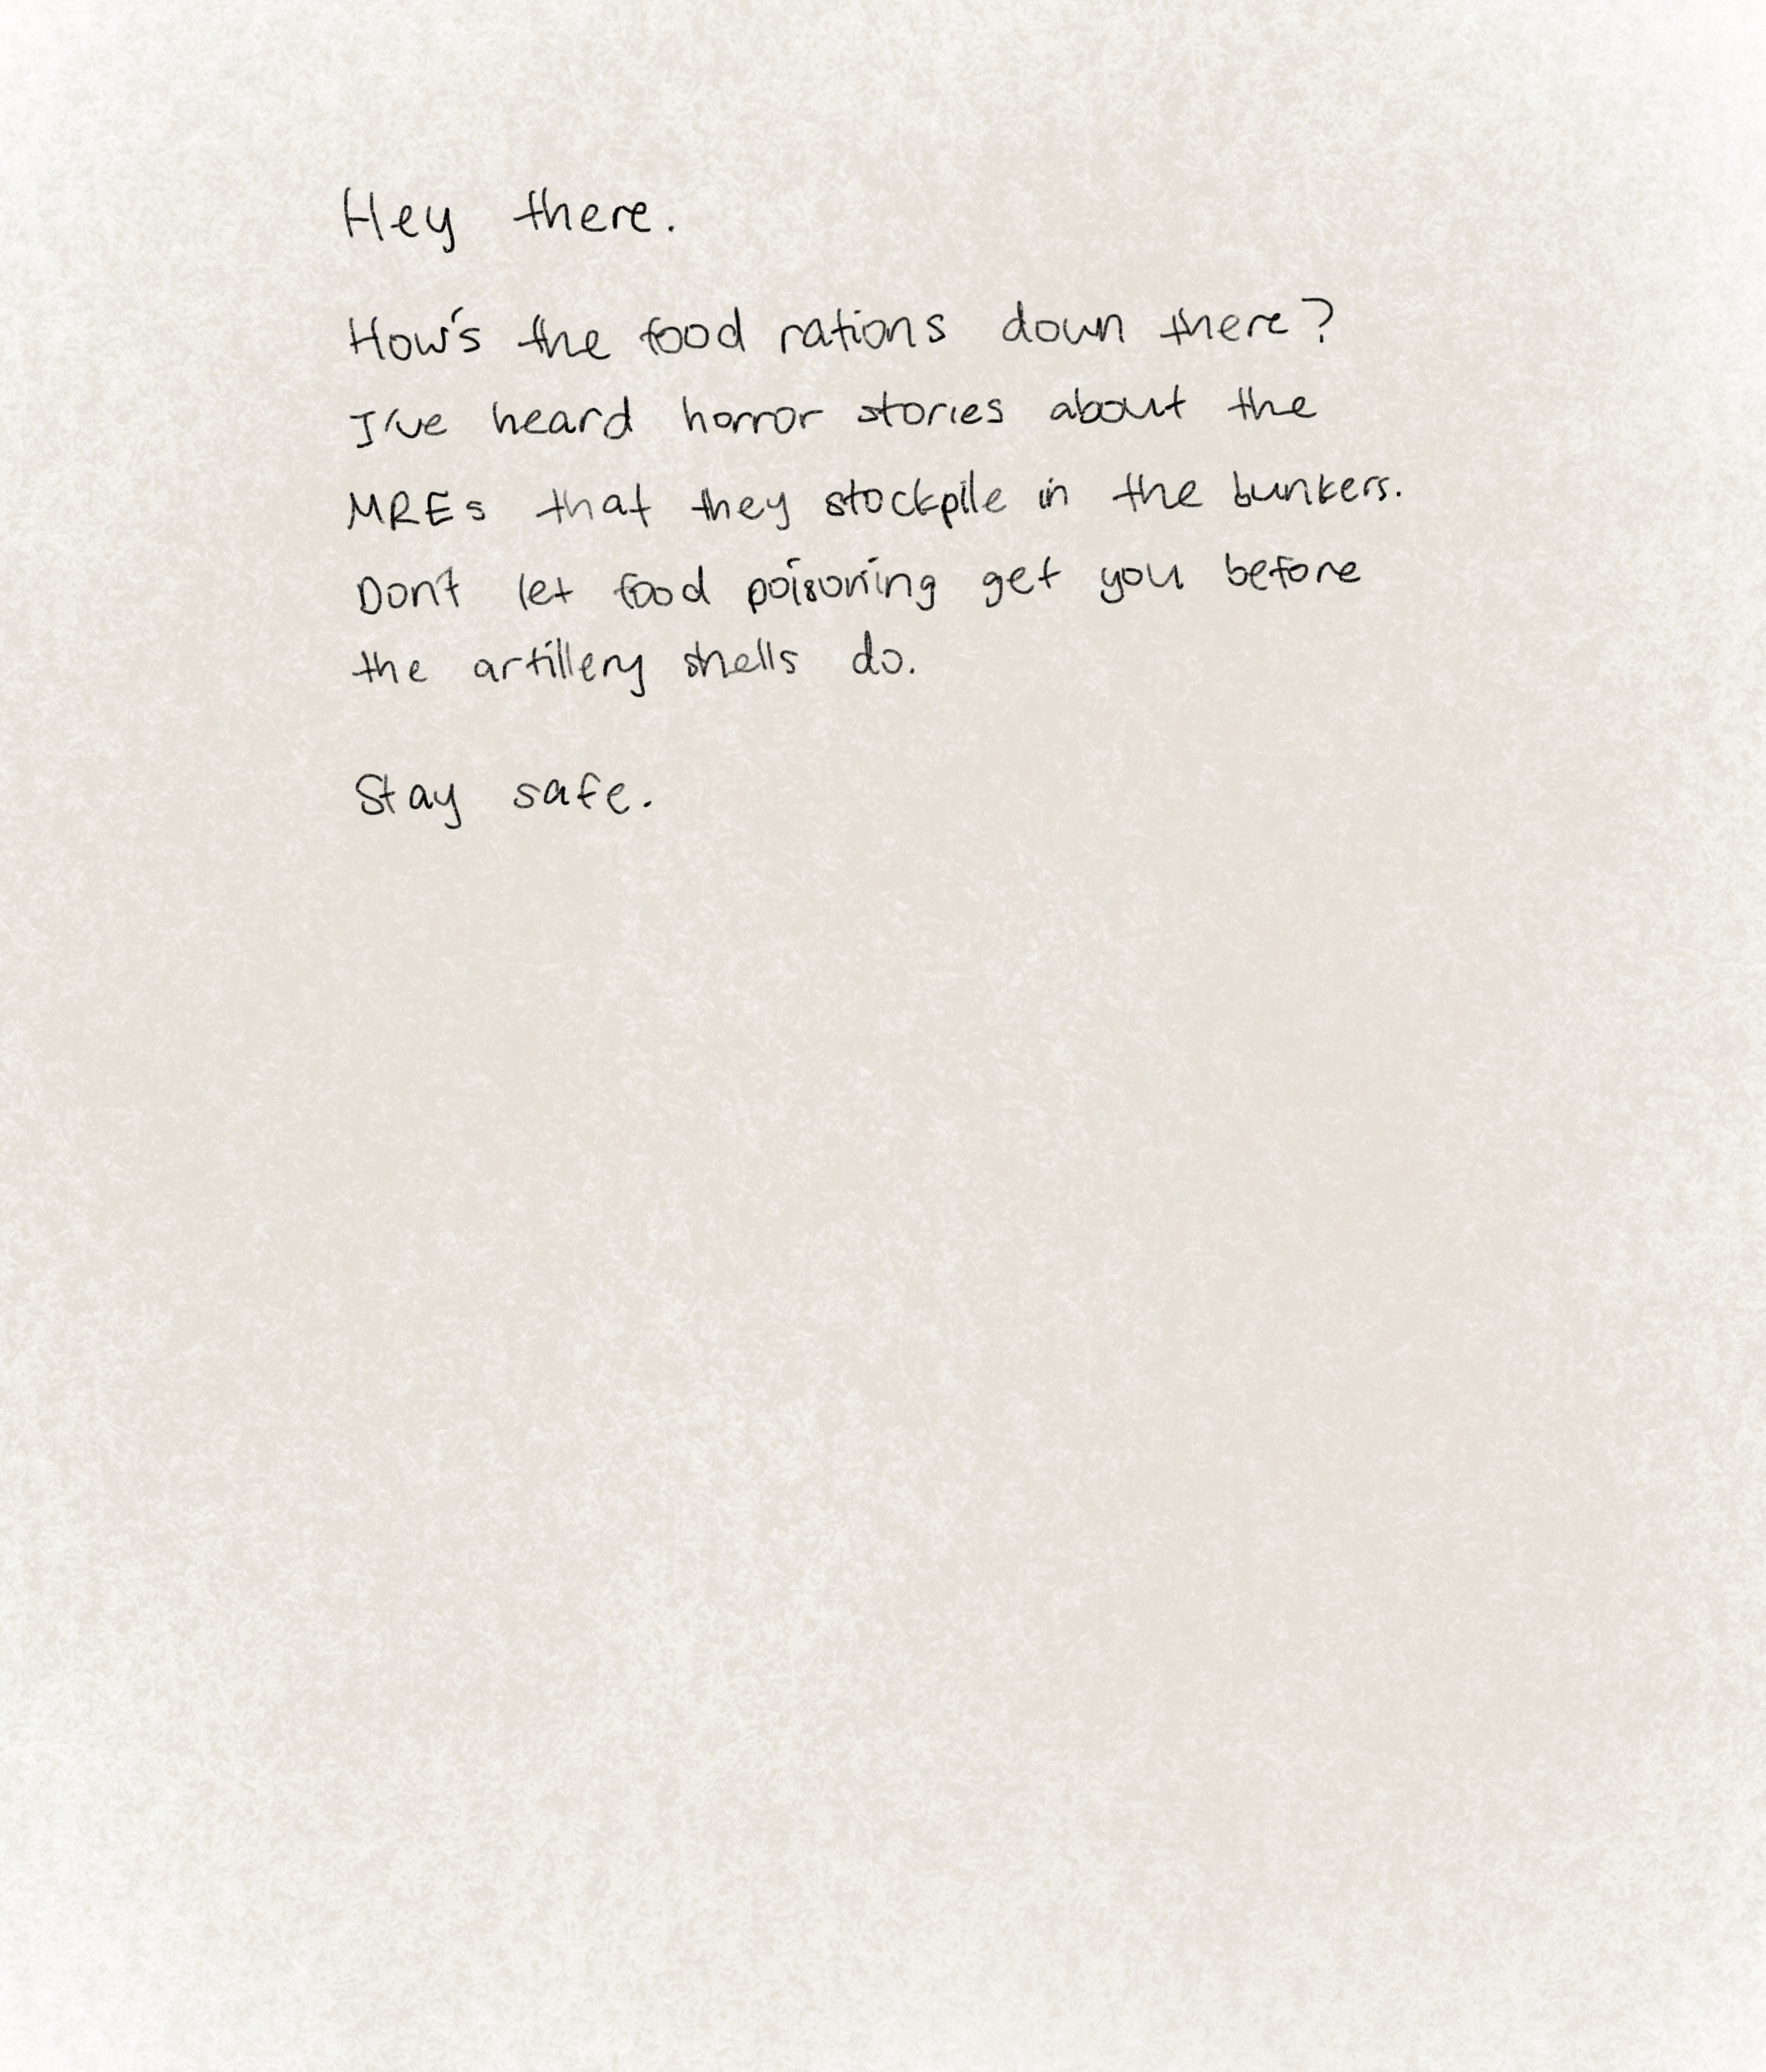 Hey there.
How's the food rations down there?
I've heard horror stories about the
MREs that they stockpile in the bunkers.
Don't let food poisoning get you before
the artillery shells do.
Stay safe.